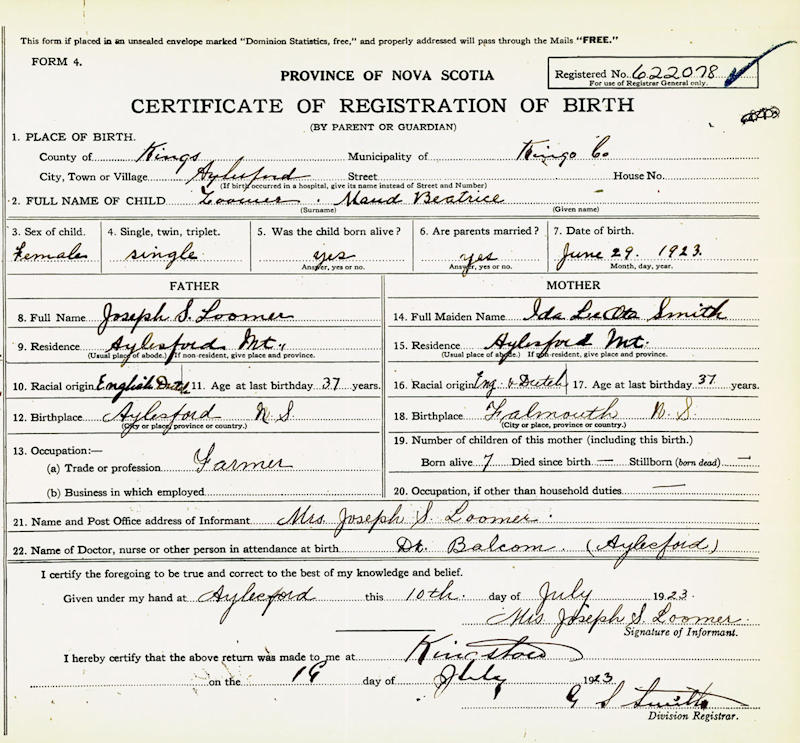 This form if placed in an unsealed envelope marked "Dominion Statistics, free," and properly addressed will pass through the Mails "FREE."
FORM 4.
PROVINCE OF NOVA SCOTIA
Registered No. 622078
For use of Registrar General only.
CERTIFICATE OF REGISTRATION OF BIRTH
(BY PARENT OR GUARDIAN)
1. PLACE OF BIRTH.
County of Kings Municipality of Kings Co
City, Town or Village Aylesford Street House No.
(If birth occurred in a hospital, give its name instead of Street and Number)
2. FULL NAME OF CHILD Loomer Maud Beatrice
(Surname) (Given name)
3. Sex of child. 4. Single, twin, triplet. 5. Was the child born alive? 6. Are parents married? 7. Date of birth.
Female single yes yes June 29. 1923.
Answer, yes or no. Answer, yes or no. Month, day, year.
FATHER
8. Full Name Joseph S. Loomer
9. Residence Aylesford Mt.,
(Usual place of abode.) If non-resident, give place and province.
10. Racial origin English Dutch 11. Age at last birthday 37 years.
12. Birthplace Aylesford N. S.
(City or place, province or country.)
13. Occupation:—
(a) Trade or profession Farmer
(b) Business in which employed
MOTHER
14. Full Maiden Name Ida Smith
15. Residence Aylesford Mt.
(Usual place of abode.) If non-resident, give place and province.
16. Racial origin Eng. & Dutch 17. Age at last birthday 37 years.
18. Birthplace Falmouth N. S.
(City or place, province or country.)
19. Number of children of this mother (including this birth.)
Born alive 7 Died since birth — Stillborn (born dead) —
20. Occupation, if other than household duties —
21. Name and Post Office address of Informant Mrs. Joseph S. Loomer.
22. Name of Doctor, nurse or other person in attendance at birth Dr. Balcom. (Aylesford)
I certify the foregoing to be true and correct to the best of my knowledge and belief.
Given under my hand at Aylesford this 10th. day of July 1923.
Mrs. Joseph S. Loomer.
Signature of Informant.
I hereby certify that the above return was made to me at Kingston
on the day of July 1923
G S Smith
Division Registrar.